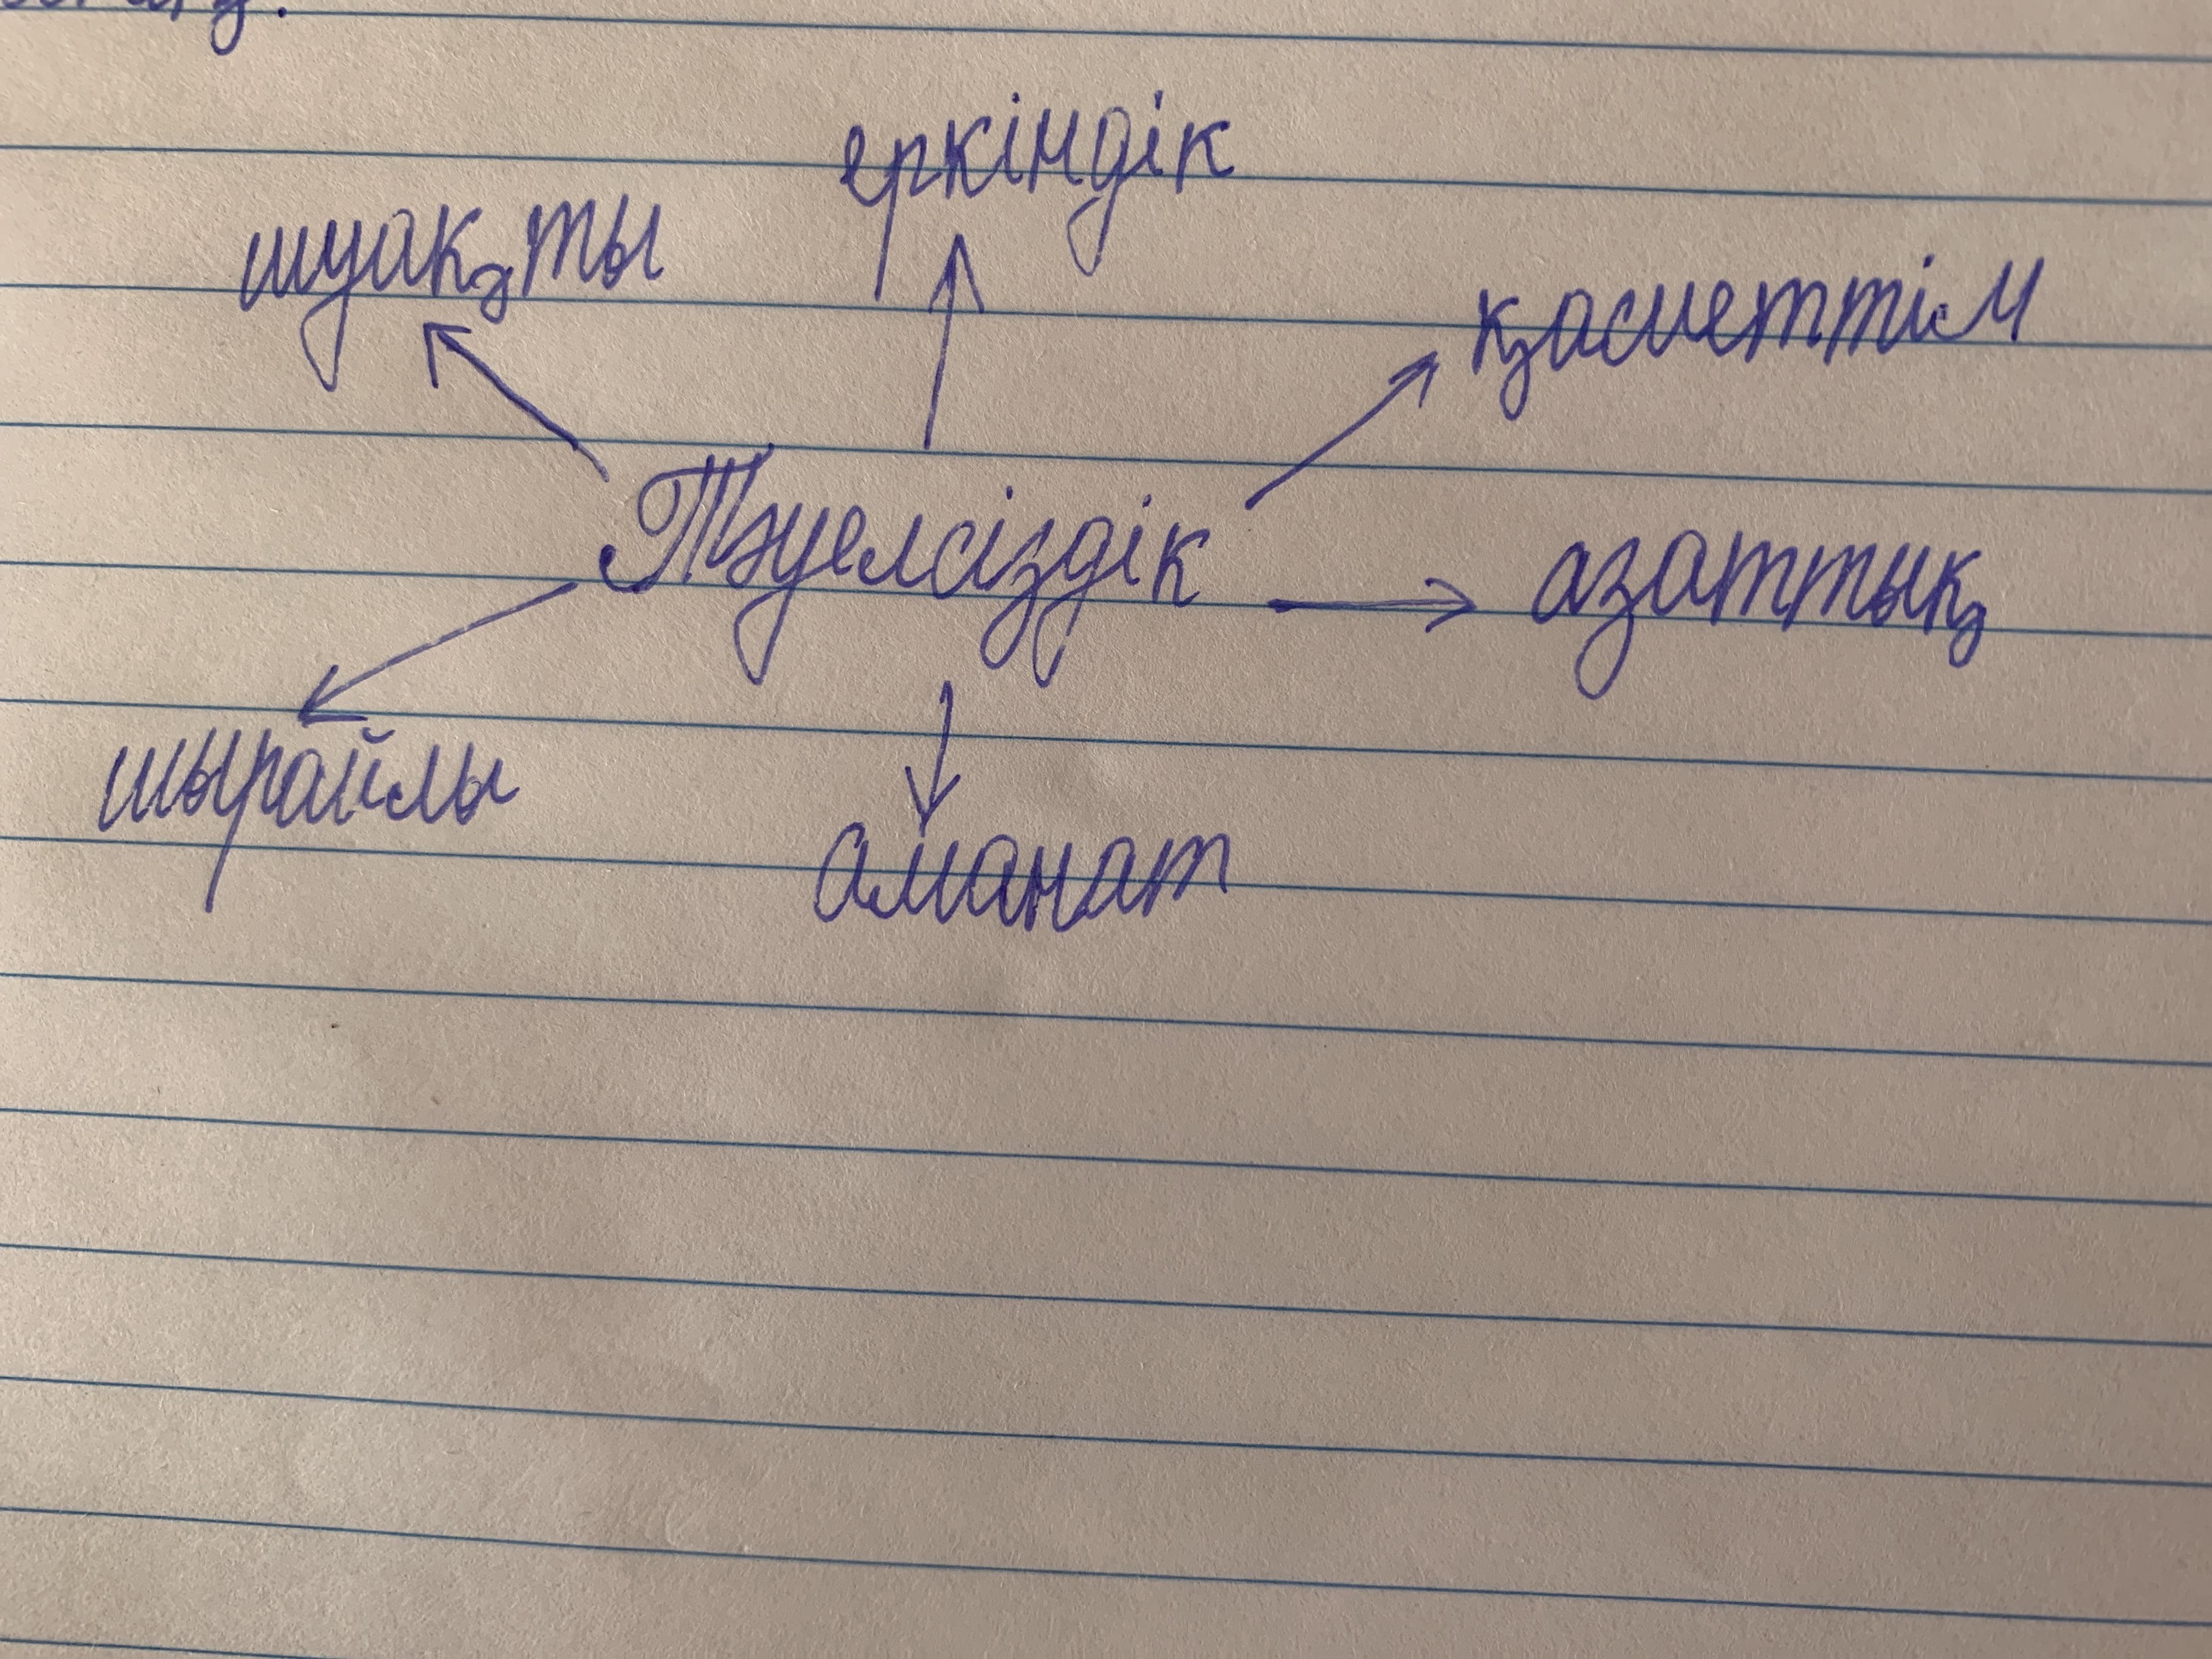 еркіндік
шуақты
қасиеттім
Тәуелсіздік
азаттық
шырайлы
аманат